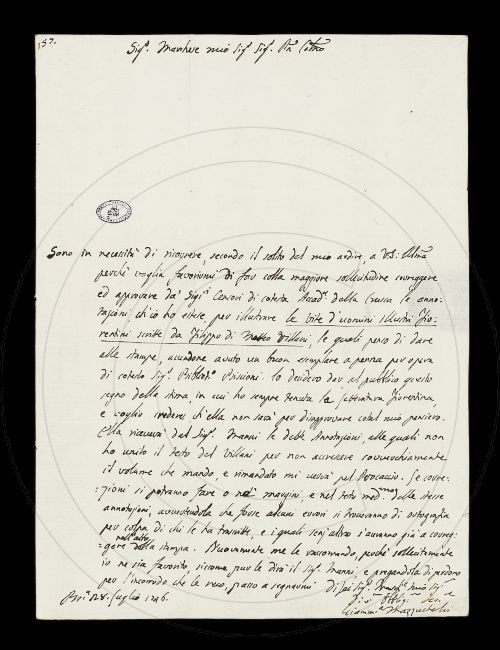 157.
Sig.r Marchese mio Sig.r Sig.r Pn. Colmo
Sono in necessità di ricorrere, secondo il solito del mio ardire, a VS: Illma
perchè voglia favorirmi di far colla maggiore sollecitudine correggere
ed approvare da' Sigri Censori di cotesta Accad.a della Crusca le anno-
tazioni, ch'io ho estese per illustrare le vite d'uomini illustri Fio-
rentini scritte da Filippo di Matteo Villani, le quali penso di dare
alle stampe, avendone avuto un buon esemplare a penna per opera
di cotesto Sig.r Bibliot.o Biscioni. Io desidero dar al pubblico questo
segno della stima, in cui ho sempre tenuta la letteratura Fiorentina,
e voglio credere ch'ella non sarà per disapprovare cotal mio pensiero.
Ella riceverà dal Sig.r Manni le dette Annotazioni, alle quali non
ho unito il testo del Villani per non accrescere soverchiamente
il volume che mando, e rimandato mi verrà pel Boccaccio. Le corre-
zioni si potranno fare o ne' margini, e nel testo med.mo delle stesse
annotazioni, avvertendola che forse alcuni errori si troveranno di ortografia
per colpa di chi le ha trascritte, e i quali senz'altro s'avranno già a correg-
nell'atto
gere della stampa. Nuovamente me le raccomando, perchè sollecitamente
io ne sia favorito, siccome pure le dirà il Sig.r Manni, e pregandola di perdono
per l'incomodo che le reco, passo a segnarmi Di Lei Sig.r March.e mio Sig.r
Div.mo Obblig.mo Serv.e
Bre.a 28. Luglio 1746. Giammª Mazzuchelli